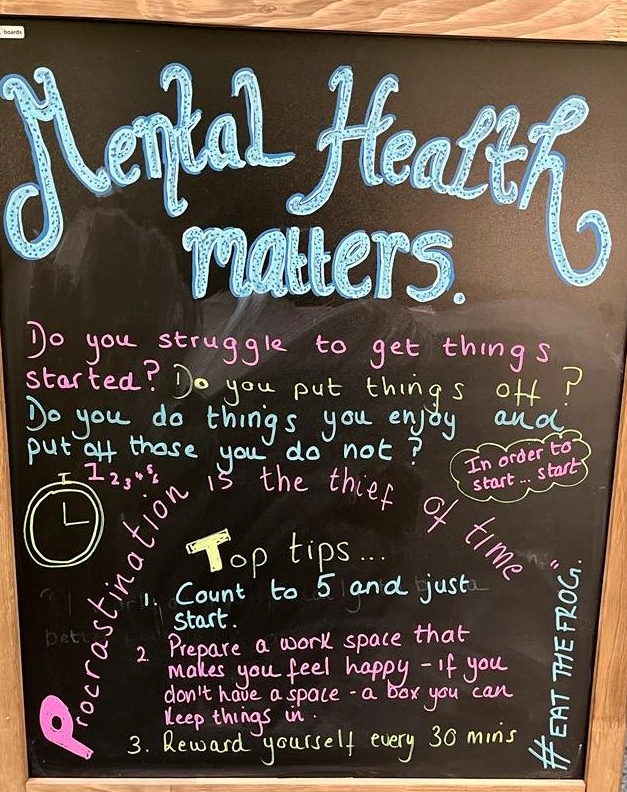 boards
Mental Health
matters.
Do you struggle to get things
started? Do you put things off?
Do you do things you enjoy and
put off those you do not?
In order to
start... start
1 2 3 4 5
Procrastination is the thief of time
Top tips...
1. Count to 5 and just
start.
2 Prepare a work space that
makes you feel happy - if you
don't have a space - a box you can
keep things in.
3. Reward yourself every 30 mins
#EAT THE FROG.